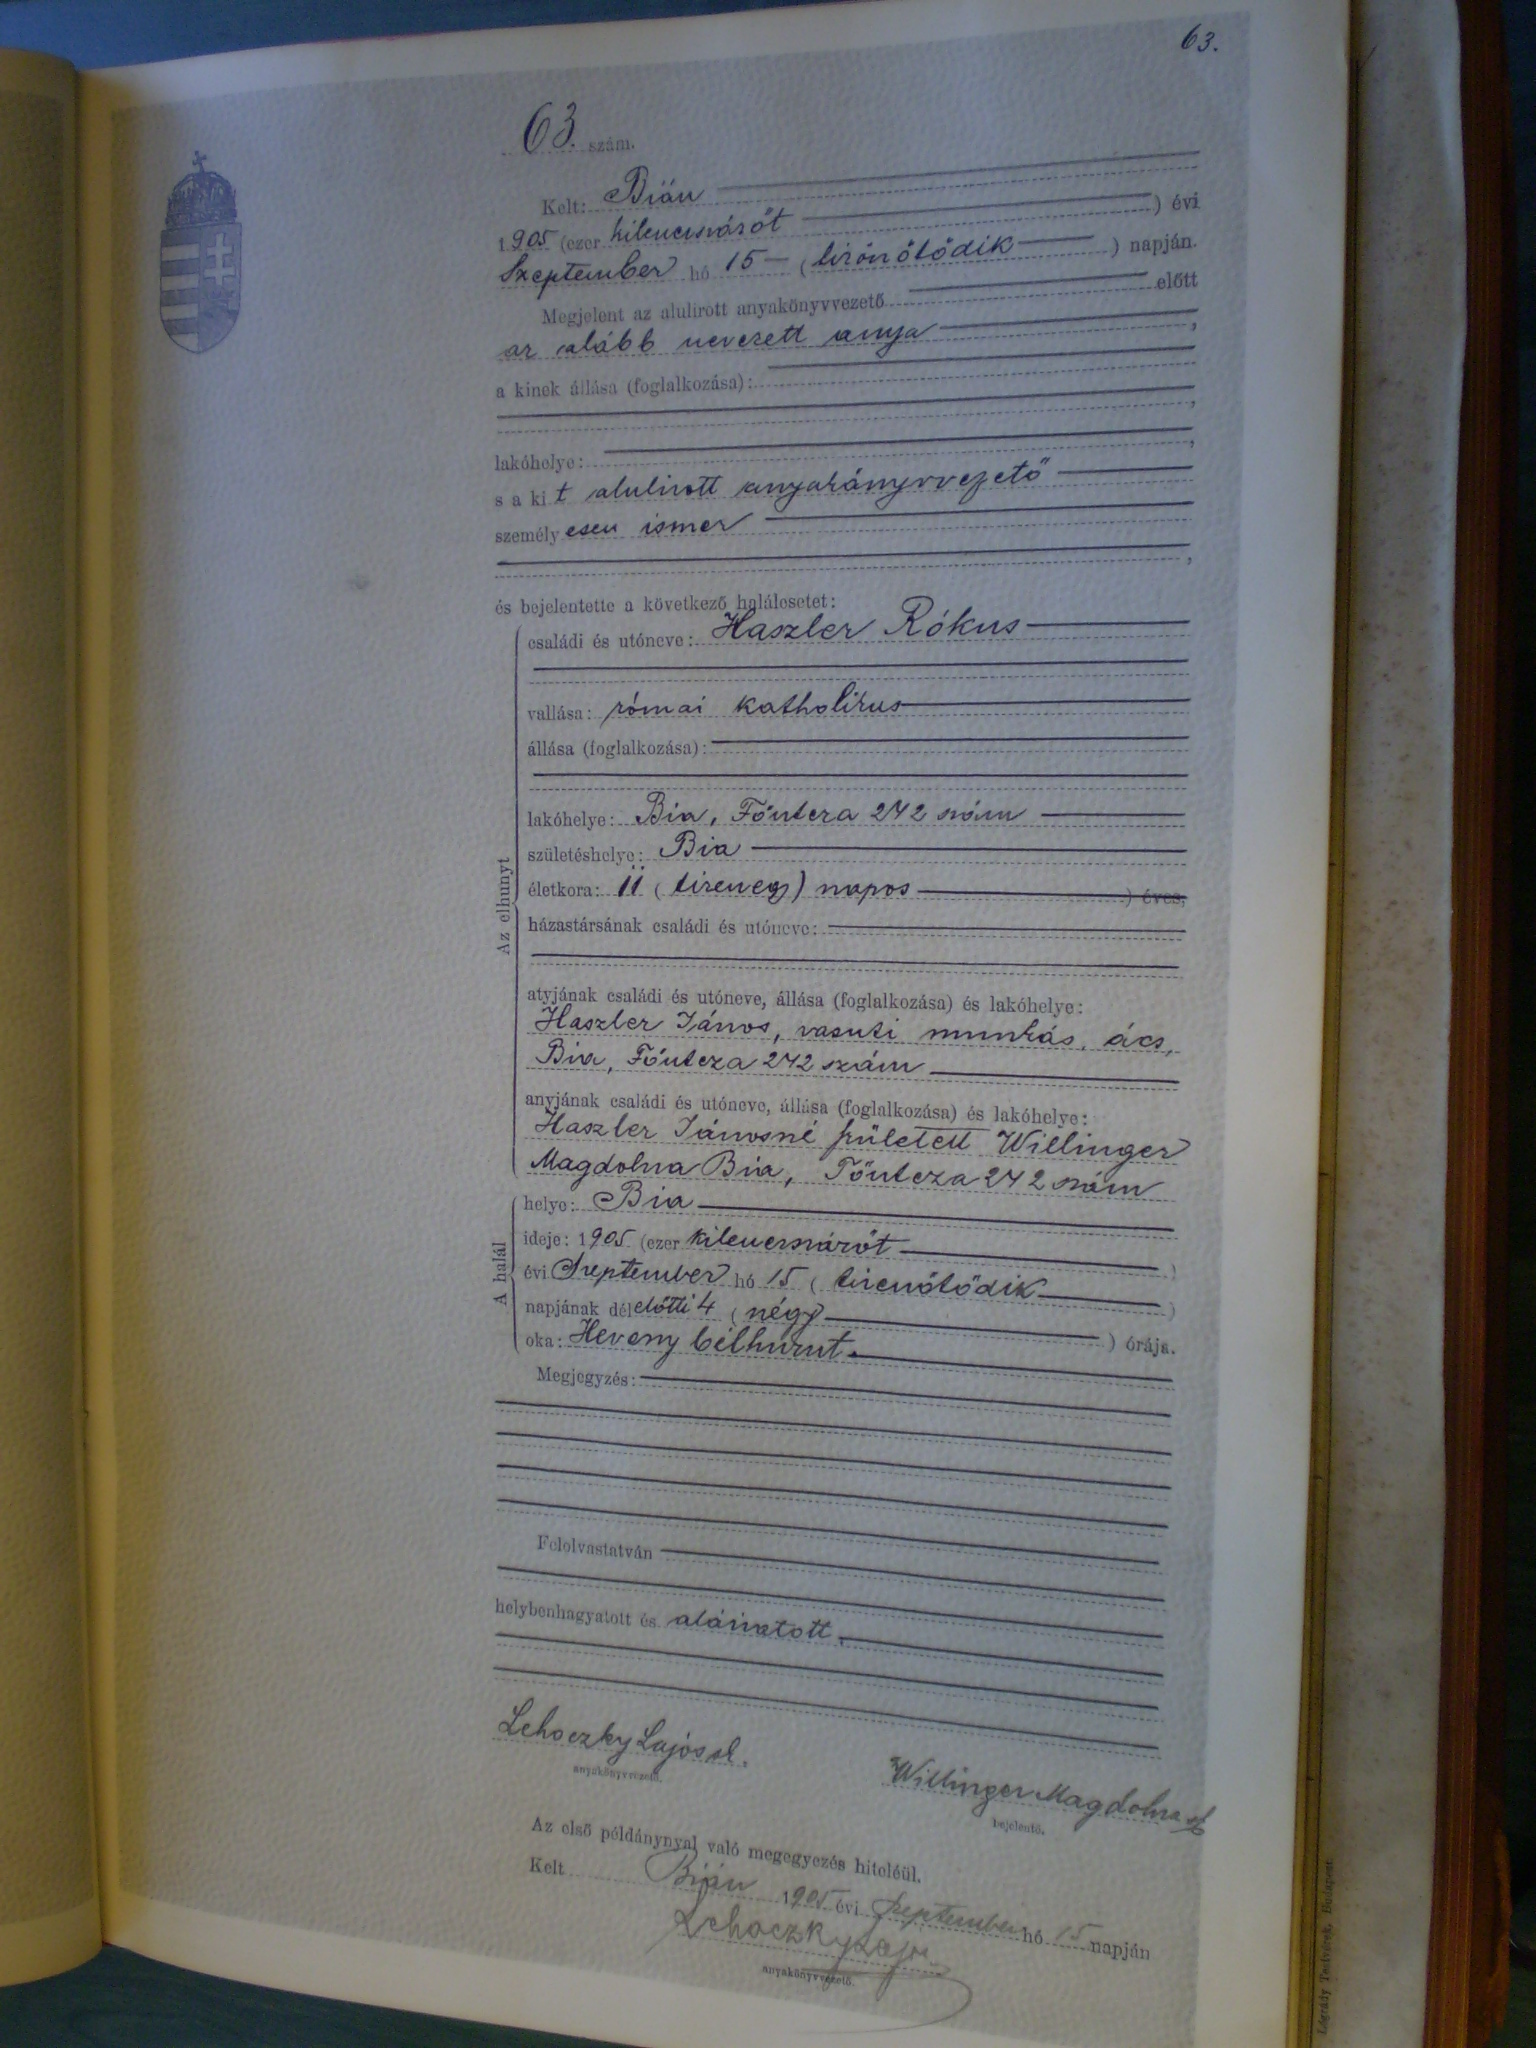 63.
63. szám.
Kelt: Bián
1905 (ezer kilenczszázöt ) évi
Szeptember hó 15 (tizenötödik ) napján.
Megjelent az alulirott anyakönyvvezető előtt
az alább nevezett anya ,
a kinek állása (foglalkozása):
,
lakóhelye: ,
s a kit alulirott anyakönyvvezető
személyesen ismer
,
és bejelentette a következő halálesetet:
Az elhunyt
családi és utóneve: Haszler Rókus
vallása: római katholikus
állása (foglalkozása):
lakóhelye: Bia, Főutcza 242 szám
születéshelye: Bia
életkora: 11 (tizenegy) napos ) éves,
házastársának családi és utóneve:
atyjának családi és utóneve, állása (foglalkozása) és lakóhelye:
Haszler János, vasuti munkás, ács,
Bia, Főutcza 242 szám
anyjának családi és utóneve, állása (foglalkozása) és lakóhelye:
Haszler Jánosné született Willinger
Magdolna Bia, Főutcza 242 szám
A halál
helye: Bia
ideje: 1905 (ezer kilenczszázöt )
évi Szeptember hó 15 (tizenötödik )
napjának délelőtti 4 (négy ) órája.
oka: Heveny bélhurut.
Megjegyzés:
Felolvastatván
helybenhagyatott és aláiratott.
Lehoczky Lajos sk.
anyakönyvvezető.
Willinger Magdolna sk
bejelentő.
Az első példánynyal való megegyezés hiteléül.
Kelt Bián 1905 évi Szeptember hó 15 napján
Lehoczky Lajos
anyakönyvvezető.
Légrády Testvérek, Budapest